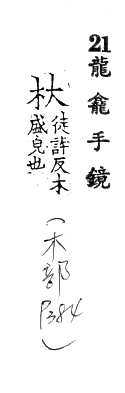 21龍龕手鏡
杕徒計反木
盛皃也
(木部P384)